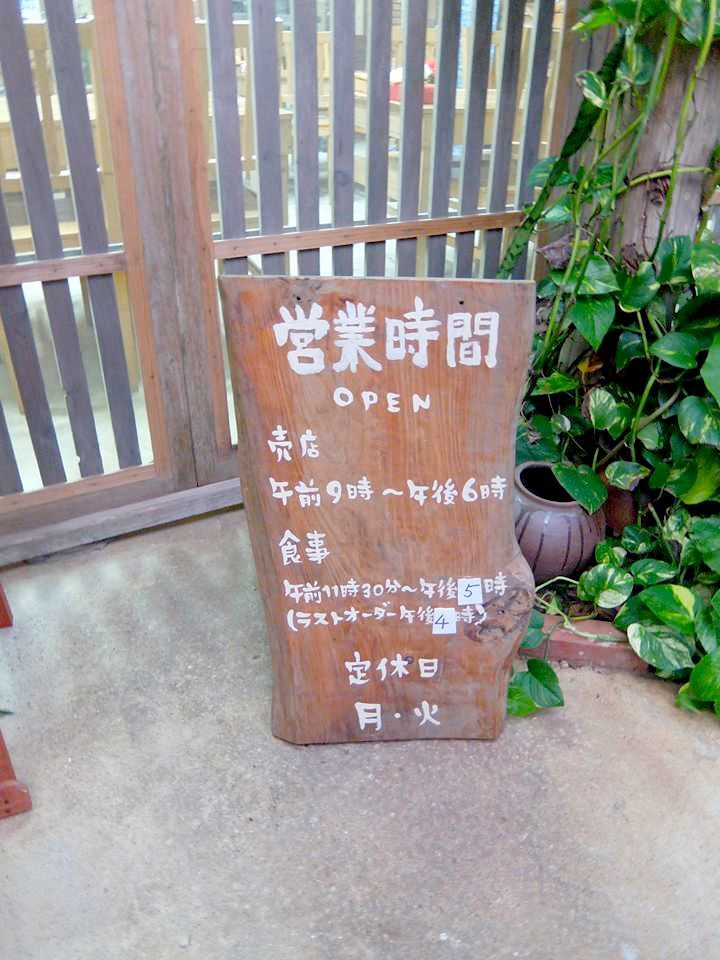 営業時間
OPEN
売店
午前9時～午後6時
食事
午前11時30分～午後5時
(ラストオーダー午後4時)
定休日
月・火